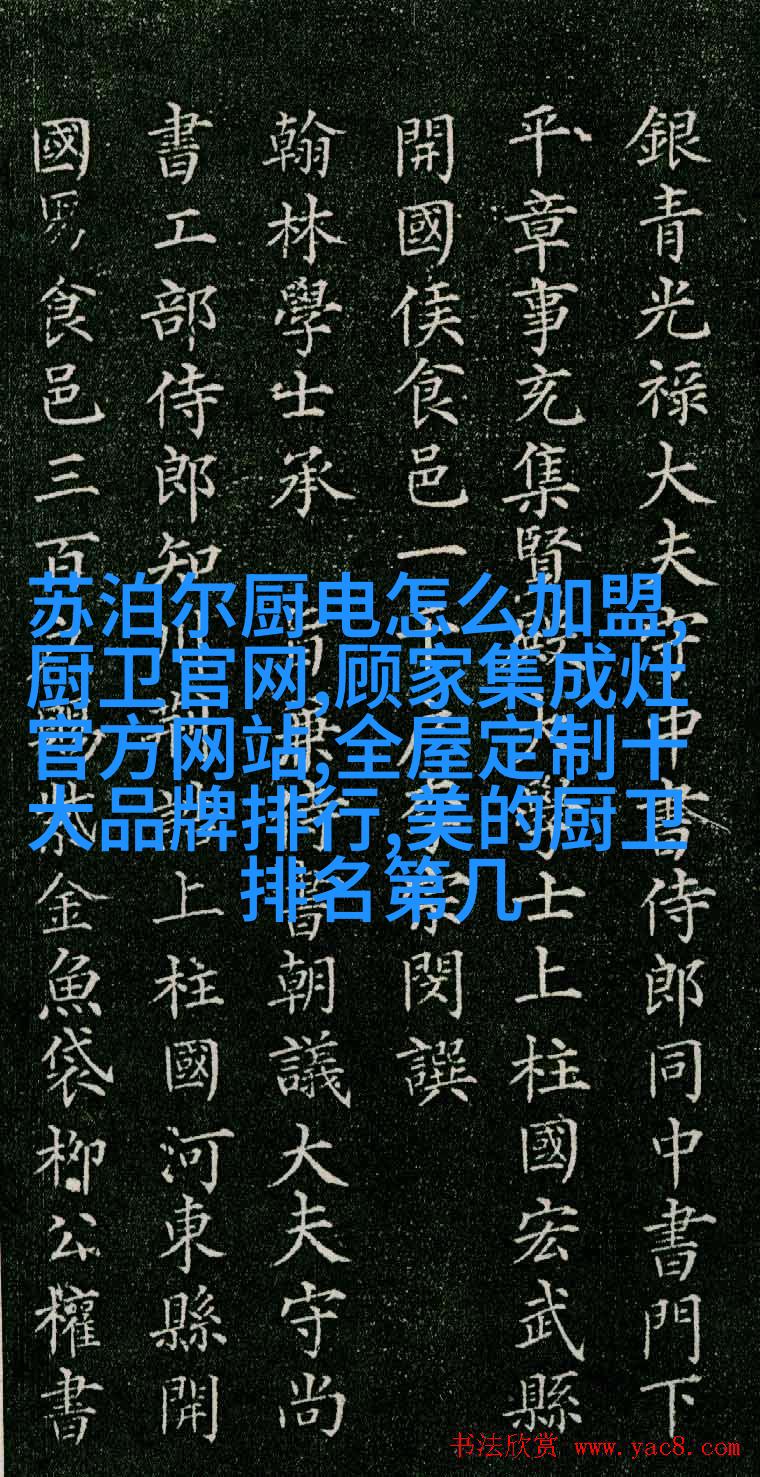 銀青光禄大夫守中書侍郎同中書門下
平章事充集賢殿大學士上柱國宏武縣
開國侯食邑一宗閔譔
翰林學士承旨兼侍書朝議大夫守尚
書工部侍郎知制誥上柱國河東縣開
國男食邑三百賜紫金魚袋柳公權書
苏泊尔厨电怎么加盟,
厨卫官网,顾家集成灶
官方网站,全屋定制十
大品牌排行,美的厨卫
排名第几
书法欣赏 www.yac8.com